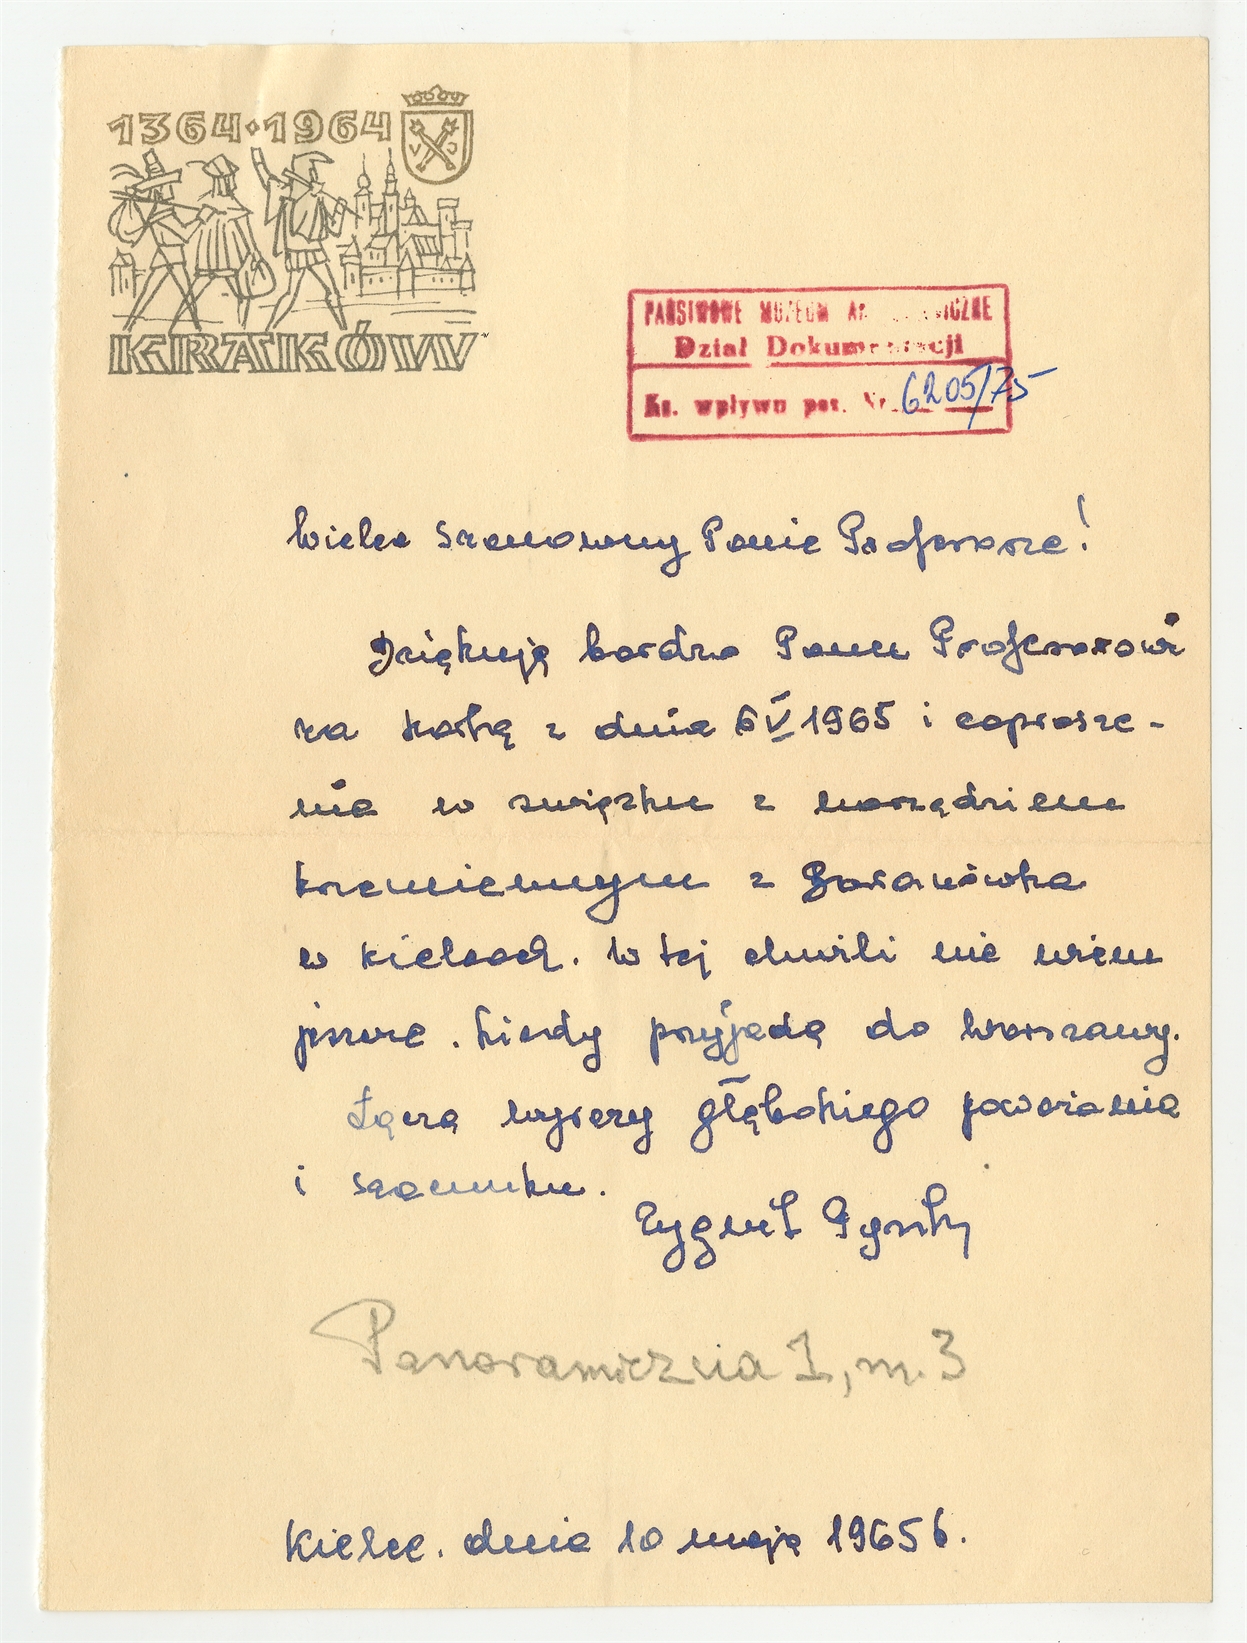 1364·1964
V J
KRAKÓW
PAŃSTWOWE MUZEUM AR ICZNE
Dział Dokumentacji
Ks. wpływu poz. Nr. 6205/75
Wielce szanowny Panie Profesorze!
Dziękuję bardzo Panu Profesorowi
za kartkę z dnia 6 V 1965 i zaprosze-
nia w związku z narzędziem
krzemiennym z Baranówka
w Kielcach. W tej chwili nie wiem
jeszcze. kiedy przyjadę do Warszawy.
Łączę wyrazy głębokiego poważania
i szacunku.
Zygmunt Pyzik
Panoramiczna 1, m. 3
Kielce. dnia 10 maja 1965 r.